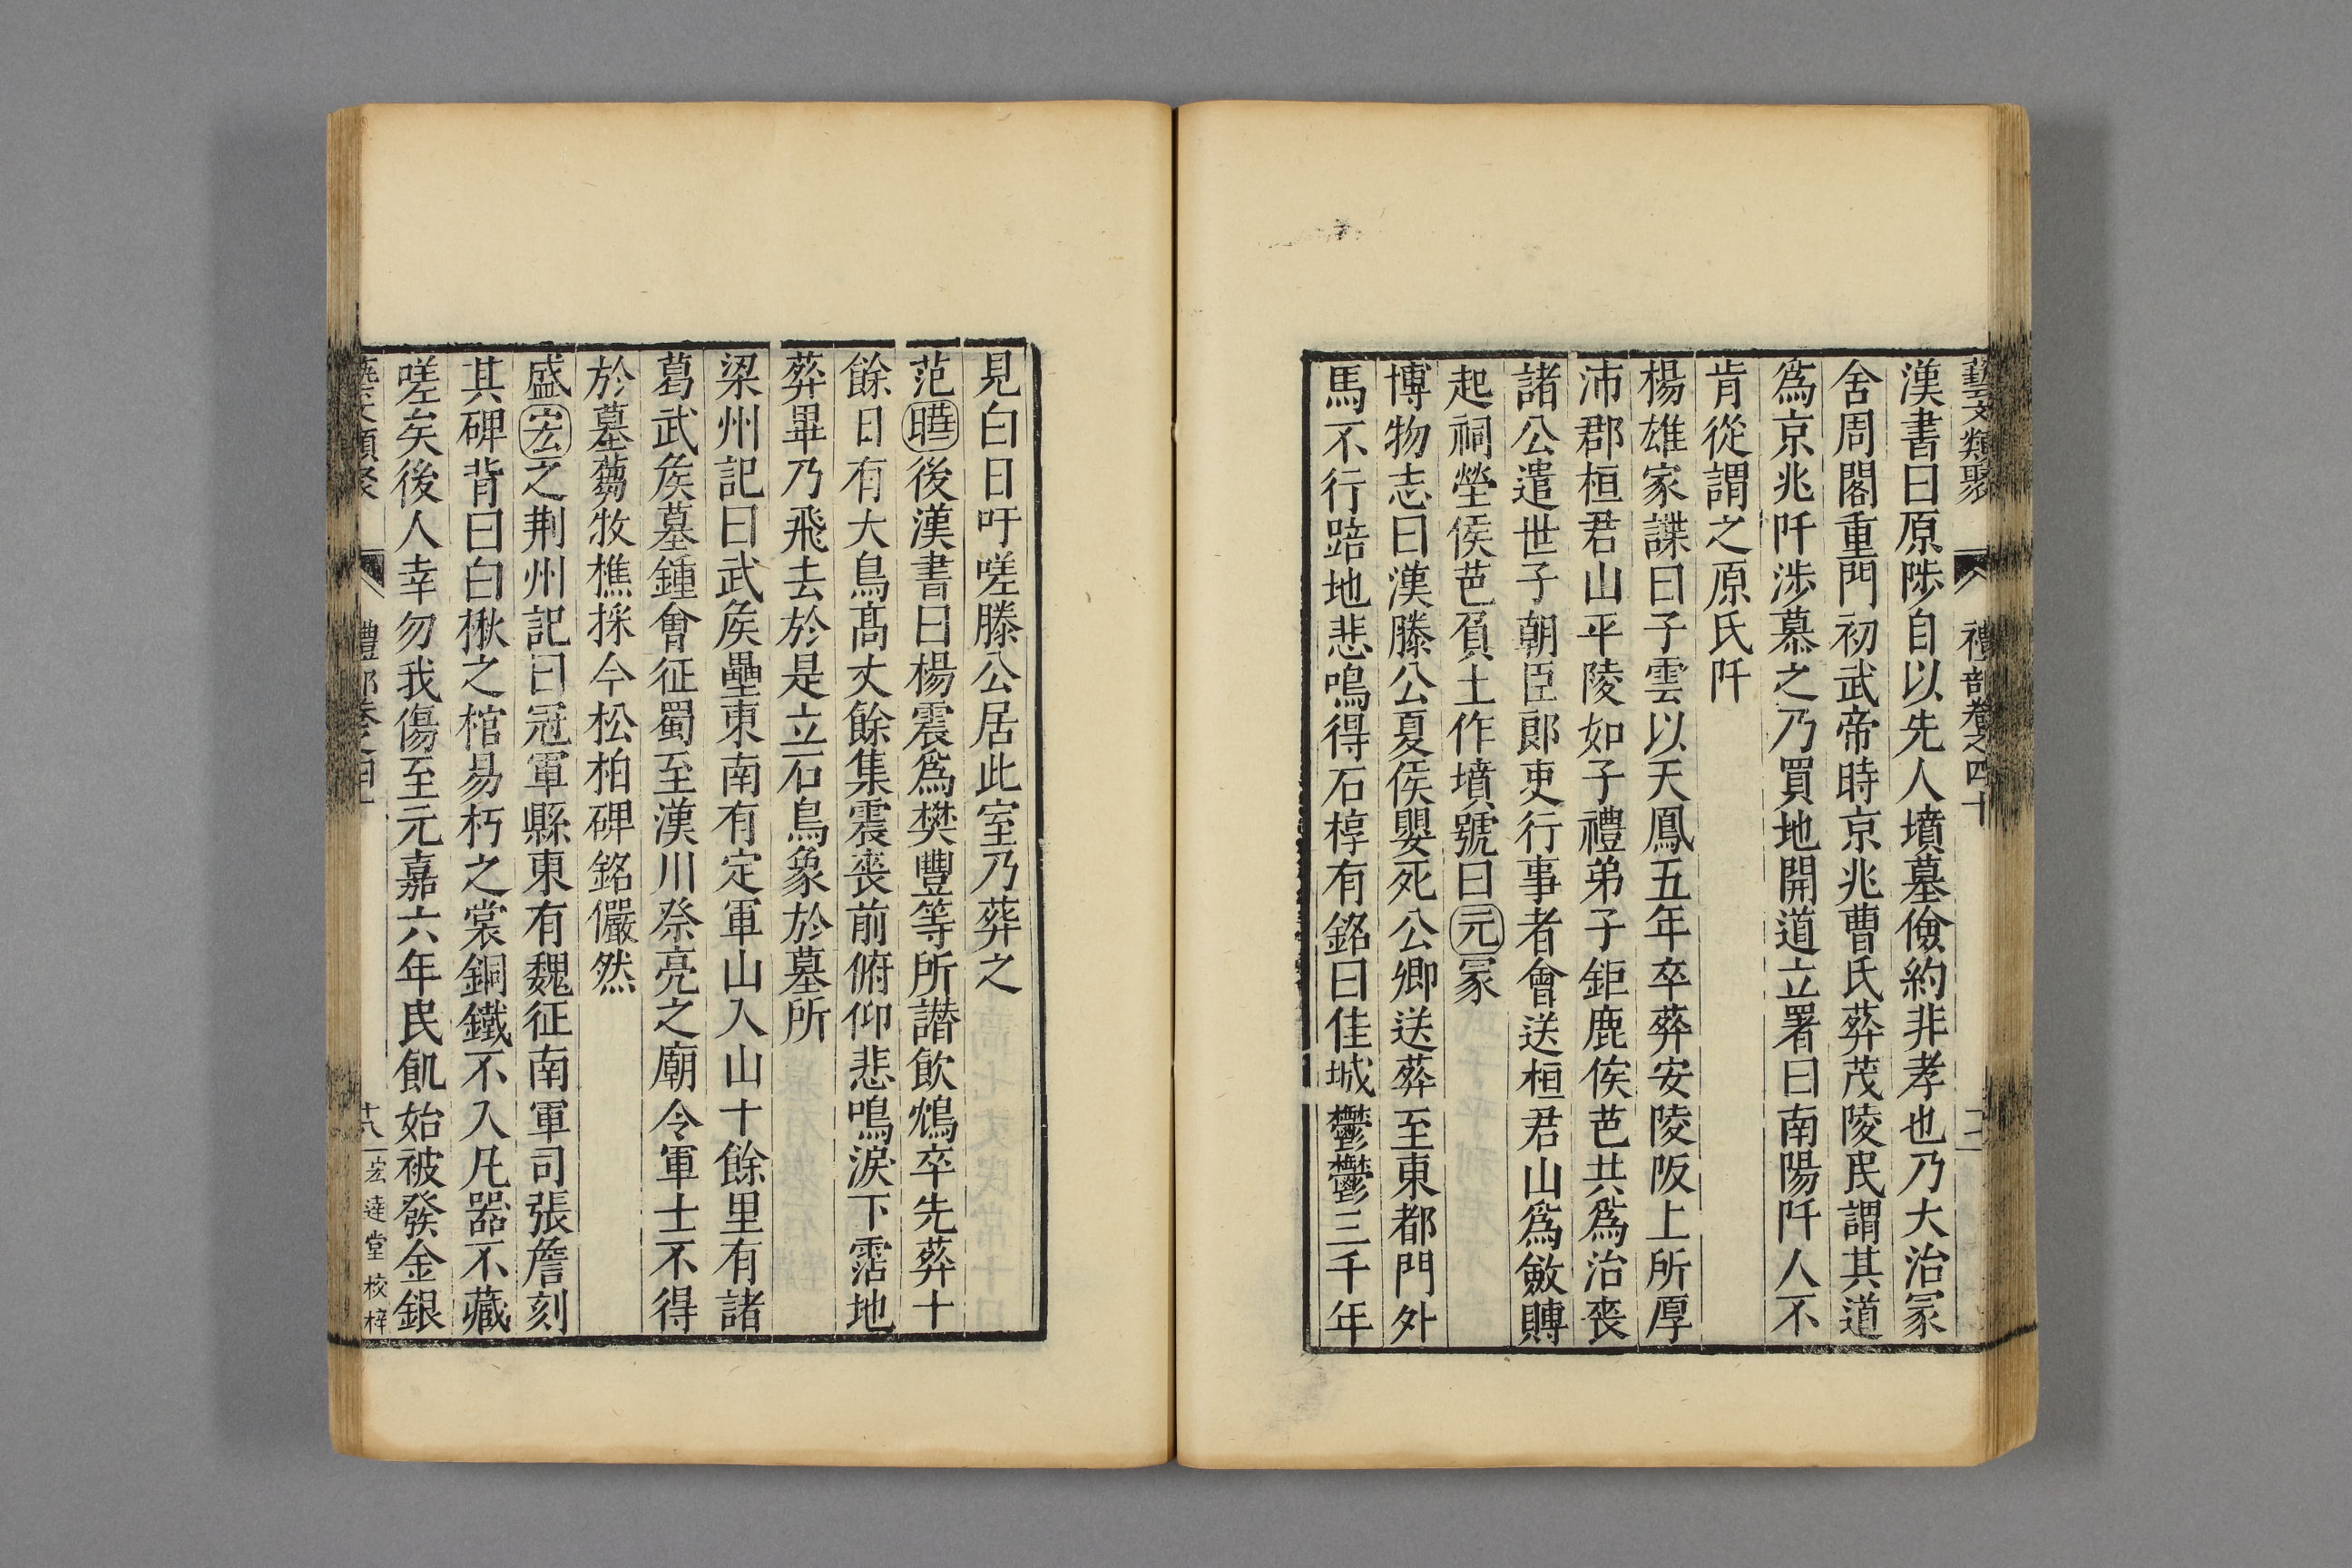 藝文類聚 禮部卷之四十
漢書曰原陟自以先人墳墓儉約非孝也乃大治冢
舍周閣重門初武帝時京兆曹氏葬茂陵民謂其道
爲京兆阡渉慕之乃買地開道立署曰南陽阡人不
肯從謂之原氏阡
楊雄家諜曰子雲以天鳳五年卒葬安陵阪上所厚
沛郡桓君山平陵如子禮弟子鉅鹿侯芭共爲治喪
諸公遣世子朝臣郎吏行事者會送桓君山爲斂賻
起祠塋侯芭負土作墳號曰元冢
博物志曰漢滕公夏侯嬰死公卿送葬至東都門外
馬不行踣地悲鳴得石椁有銘曰佳城鬱鬱三千年
見白日吁嗟滕公居此室乃葬之
范曄後漢書曰楊震爲樊豐等所譖飲鴆卒先葬十
餘日有大鳥髙丈餘集震喪前俯仰悲鳴淚下霑地
葬畢乃飛去於是立石鳥象於墓所
梁州記曰武矦壘東南有定軍山入山十餘里有諸
葛武矦墓鍾會征蜀至漢川祭亮之廟令軍士不得
於墓蒭牧樵採今松柏碑銘儼然
盛宏之荆州記曰冠軍縣東有魏征南軍司張詹刻
其碑背曰白楸之棺易朽之裳銅鐵不入凡器不藏
嗟矣後人幸勿我傷至元嘉六年民飢始被發金銀
藝文類聚 禮部卷之四十 十八 宏達堂校梓